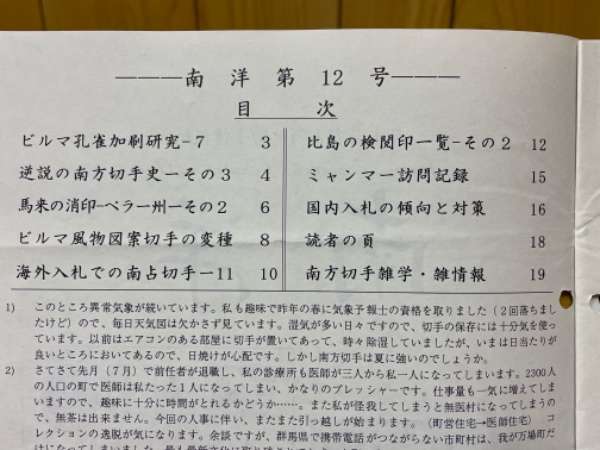 ———南 洋 第 12 号———
目 次
ビルマ孔雀加刷研究-7 3
逆説の南方切手史ーその3 4
馬来の消印-ペラー州ーその2 6
ビルマ風物図案切手の変種 8
海外入札での南占切手ー11 10
比島の検閲印一覧-その2 12
ミャンマー訪問記録 15
国内入札の傾向と対策 16
読者の頁 18
南方切手雑学・雑情報 19
1) このところ異常気象が続いています。私も趣味で昨年の春に気象予報士の資格を取りました(2回落ちまし
たけど)ので、毎日天気図は欠かさず見ています。湿気が多い日々ですので、切手の保存には十分気を使っ
ています。以前はエアコンのある部屋に切手が置いてあって、時々除湿していましたが、いまは日当たりが
良いところにおいてあるので、日焼けが心配です。しかし南方切手は夏に強いのでしょうか。
2) さてさて先月(7月)で前任者が退職し、私の診療所も医師が三人から私一人になってしまいます。2300人
の人口の町で医師は私たった1人になってしまい、かなりのプレッシャーです。仕事量も一気に増えてしま
いますので、趣味に十分に時間がとれるかどうか……。また私が怪我してしまうと無医村になってしまうの
で、無茶は出来ません。今回の人事に伴い、またまた引っ越しが始まります。(町営住宅→医師住宅) コ
レクションの逸脱が気になります。余談ですが、群馬県で携帯電話がつながらない市町村は、我が万場町だ
けになってしまいました。